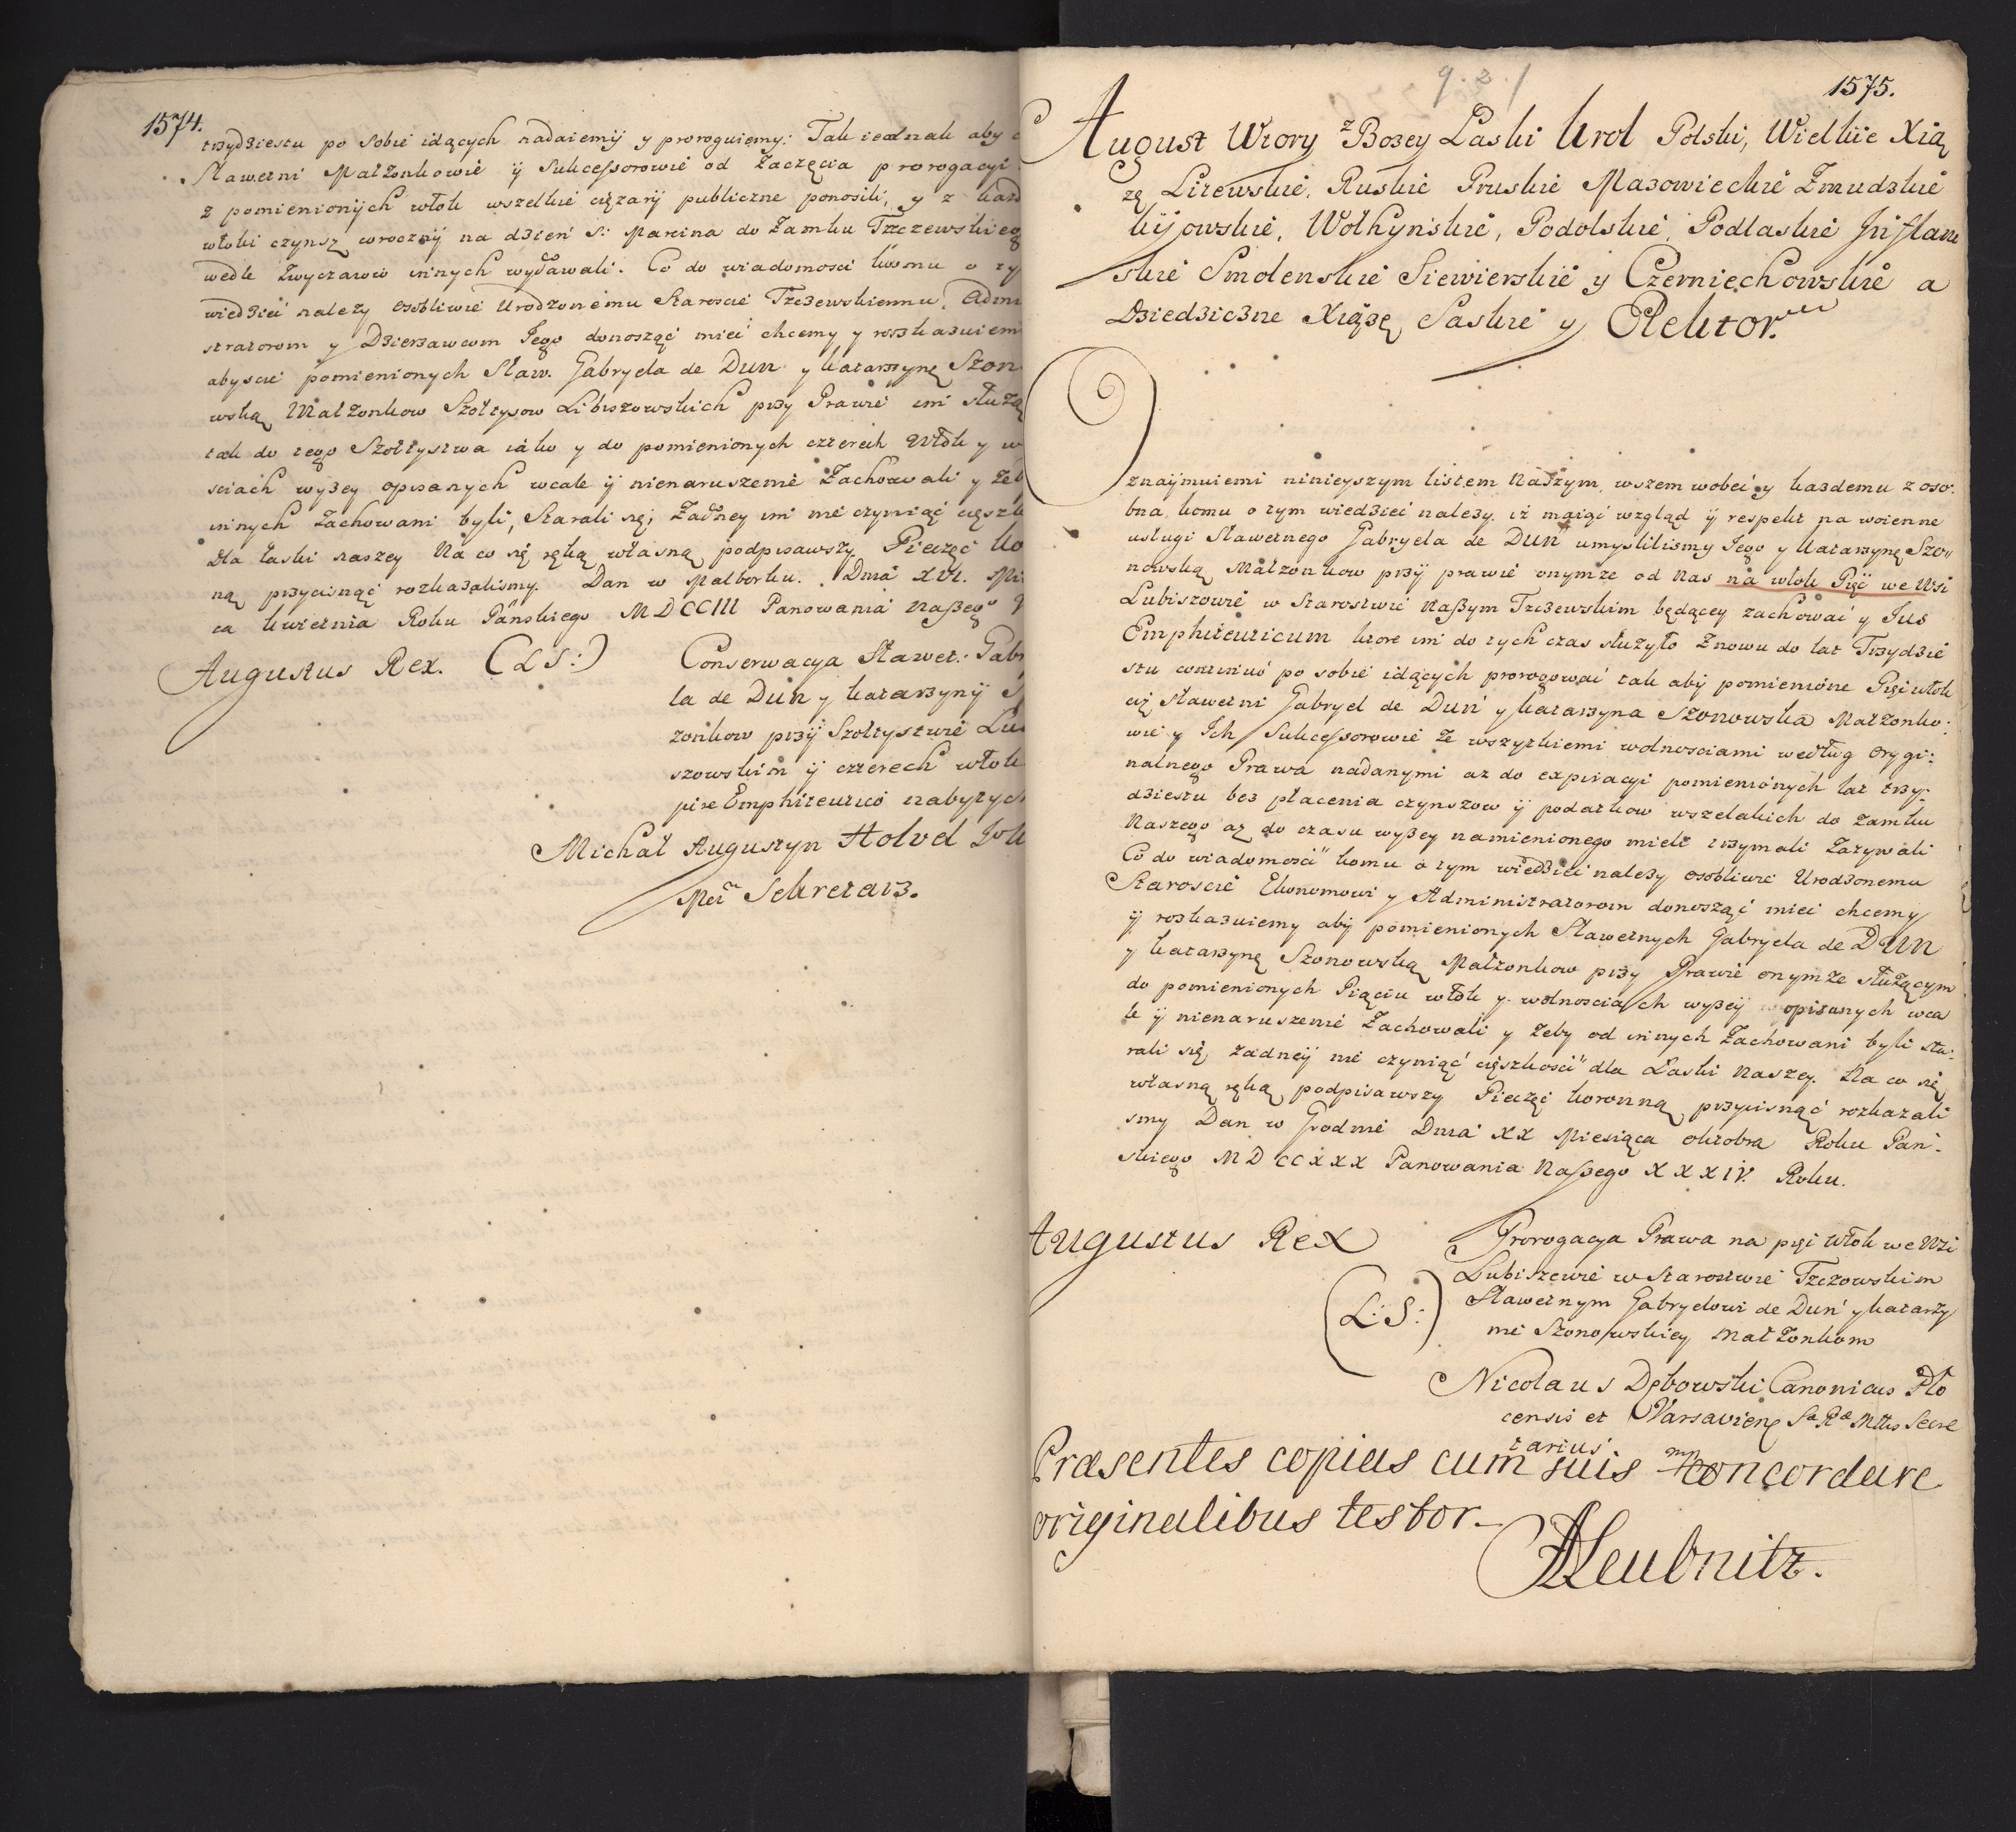 1574.
trzydziestu po sobie idących nadaiemy y proroguiemy: Tak iednak aby
Sławetni Małżonkowie ÿ Sukcessorowie od Zaczęcia prorogacyi
z pomienionÿch włok wszelkie ciężarÿ publiczne ponosili, y z
włoki czynsz corocznÿ na dzień S: Marcina do Zamku Trzczewskieg
wedle Zwyczaiow innych wydawali. Co do wiadomosci komu o
wiedzieć należy osobliwie Urodzonemu Staroscie Trczewskiemu, Admi
stratorom y Dzierzawcom Jego donosząc mieć chcemy y rozkazuiem
abyscie pomienionych Sław. Gabryela de Dun y Katarzynę Szon
wską Małżonkow Szołtysow Libiszowskich przy Prawie im służą
tak do tego Szołtystwa iako y do pomienionych czterech Włok y w
sciach wyżey opisanych wcale ÿ nienaruszenie Zachowali y że
innych zachowani byli, Starali się, Żadney im nie czyniąc cięszk
dla łaski naszey Na co się ręką własną podpisawszy Pieczęć ko
ną przycisnąć rozkazalismy. Dan w Malborku. Dnia XVI. Mi
ca kwietnia Roku Pańskiego MDCCIII Panowania Naszego
Augustus Rex. (LS:)
Conserwacya Sławet: Gabr
la de Dun y Katarzynÿ
żonkow przÿ Szołtystwie Lu
szowskim ÿ czterech włok
jure Emphiteutico nabytych
Michał Augustyn Holod
Mci Sekretarz.
9. 2. 1
1575.
August Wtory z Bożey Łaski Krol Polski, Wielkie Xią
żę Litewskie, Ruskie Pruskie Mazowieckie Żmudzkie
kijowskie, Wołhynskie, Podolskie, Podlaskie Jnflanc
skie Smolenskie Siewierskie y Czerniechowskie a
Dziedziczne Xiążę Saskie y Elektor.
Oznaÿmuiemi ninieyszym listem Naszym, wszem wobec y kazdemu z oso:
bna komu o tym wiedzieć należy. iż maiąc wzgląd ÿ respekt na woienne
usługi Sławetnego Gabryela de DUN umyslilismy Jego y Katarzynę Szo
nowską Małżonkow przÿ prawie onymże od Nas na włok Pięć we Wsi
Lubiszowie w Starostwie Naszym Trczewskim będącey zachować y Jus
Emphiteuticum ktore im do tych czas służyło Znowu do lat Trzydzie
stu continuò po sobie idących prorogować tak abÿ pomienione Pięć włok
ciż Sławetni Gabryel de Dun y Katarzyna Szonowska Małżonko:
wie y Ich Sukcessorowie ze wszytkiemi wolnosciami według Orygi:
nalnego Prawa nadanymi aż do expiracyi pomienionych lat trzy:
dziestu bez płacenia czynszow ÿ podatkow wszelakich do Zamku
Naszego aż do czasu wyżey namienionego mieli trzymali Zażywali
Co do wiadomosci komu o tym wiedzieć należy osobliwie Urodzonemu
Staroscie Ekonomowi y Administratorom donosząc mieć chcemy
ÿ rozkazuiemy abÿ pomienionych Sławetnych Gabryela de DUN
y Katarzynę Szonowską Małżonkow przy Prawie onymże służącym
do pomienionych Piąciu włok y wolnosciach wyżeÿ opisanych wca
le ÿ nienaruszenie Zachowali y żeby od innych Zachowani byli sta:
rali się, żadneÿ nie czyniąc cięszkosci dla Łaski Naszey. Na co się
własną ręką podpisawszy Pieczęć koronną przycisnąć rozkazali
smy Dan w Grodnie Dnia XX Miesiąca oktobra Roku Pań:
skiego MDCCXXX Panowania Naszego XXXIV. Roku.
Augustus Rex
(L:S:)
Prorogacya Prawa na pięć Włok we Wsi
Lubiszewie w Starostwie Trczowskim
Sławetnym Gabryelowi de Dun y Katarzy
nie Szonowskiey Małżonkom
Nicolaus Dębowski Canonicus Plo
censis et Varsavien S R M Secre
tarius mp
Præsentes copias cum suis concordare
originalibus testor.
Leubnitz.